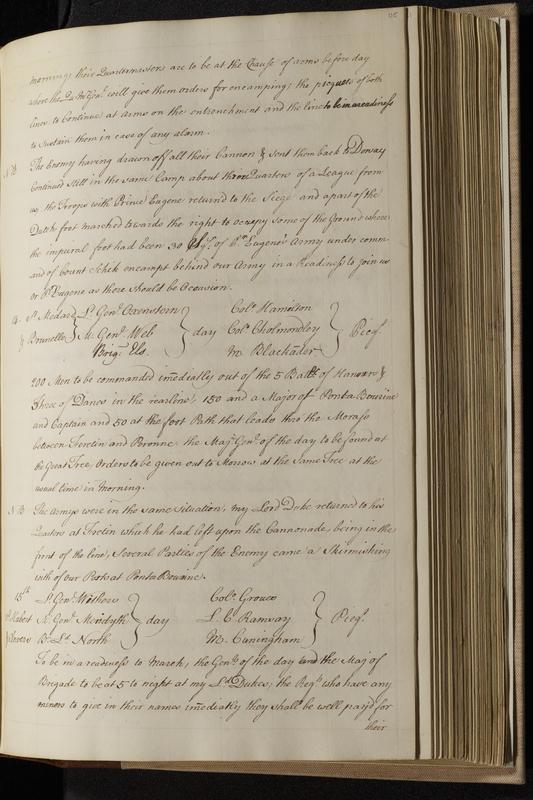 115
morning; their Quartermasters are to be at the Chause of arms before day
where the Qr Mr Genl will give them orders for encamping; the piquets of both
lines to Continue at arms on the entrenchment and the line to be in a readiness
to sustain them in case of any alarm.
NB The Enemy having drawn off all their Cannon & sent them back to Doway
Continued still in the same Camp about three Quarters of a League from
us the Troops with Prince Eugene returned to the Siege and a part of the
Dutch foot marched towards the right to occupy some of the Ground where
the imperial foot had been 30 of Pr. Eugene's Army under comm-
and of Count Schik encampt behind our Army in a Readiness to join us
or Pr Eugene as there should be Occasion.
14 St Medard Lt Genl Oxenstern Coll Hamilton
& Brunello M. Genl Web day Coll Cholmondley Picqt
Brigr Els. M. Blackader
200 Men to be commanded imediatly out of the 5 Batts of Hanover &
Three of Danes in the rearline; 150 and a Major at Ponta Bouvine
and Captain and 50 at the foot Path that leads thro the Morass
between Fretin and Peronne the Maj. Genl of the day to be found at
the Great Tree, Orders to be given out to Morrow at the same Tree at the
usual time in Morning.
NB The Armys were in the same situation, my Lord Duke returned to his
Quarters at Fretin which he had left upon the Cannonade, being in the
front of the line, Several Parties of the Enemy came a Skirmishing
with of our Posts at Ponta Bouvine.
15th Lt Genl Withers Coll Grouce
M. Genl Meridyth day L. C. Ramsay Picqt
Br. Ld North M. Cuningham
To be in a readiness to March, the Genls of the day and the Maj of
Brigade to be at 5 to night at my Ld Dukes, the Regts who have any
miners to give in their names imediatly they shall be well pay'd for
their